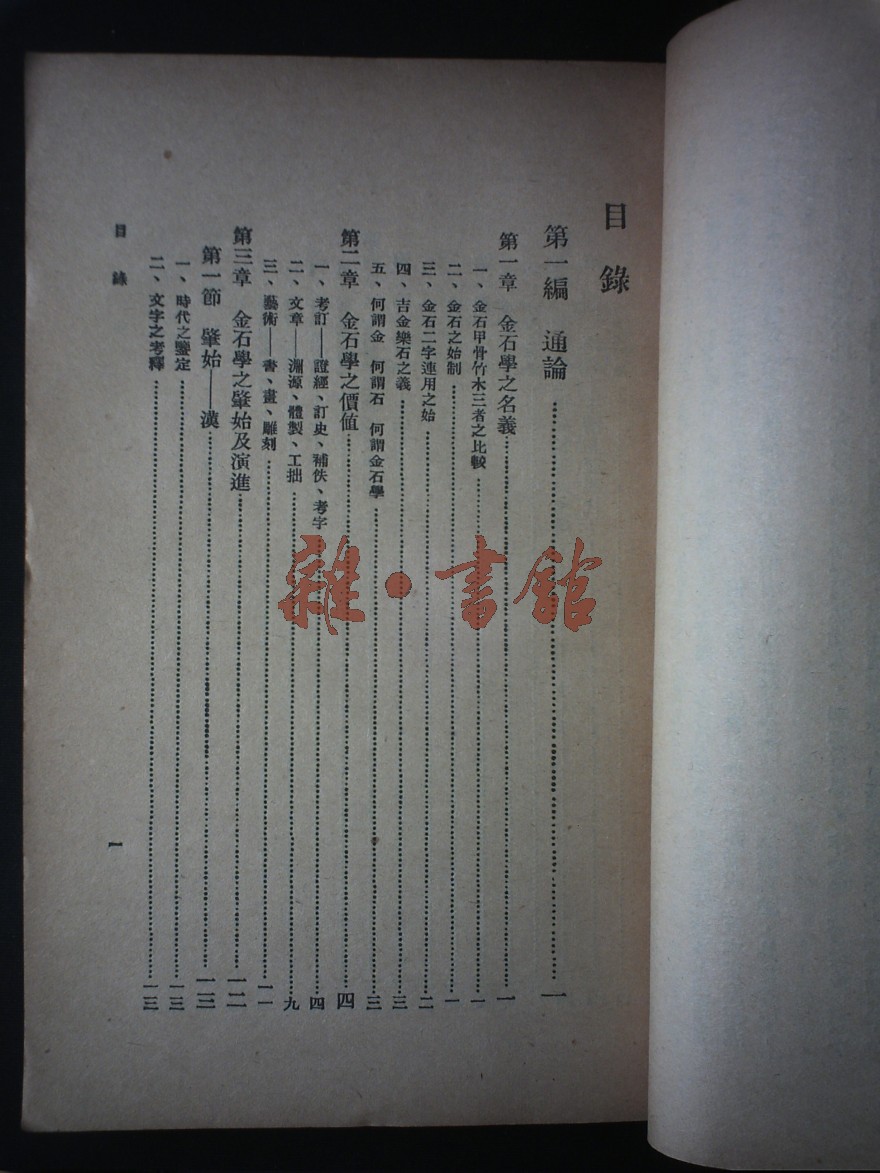 目錄
第一編 通論……一
第一章 金石學之名義……一
一、金石甲骨竹木三者之比較……一
二、金石之始制……一
三、金石二字連用之始……二
四、吉金樂石之義……三
五、何謂金 何謂石 何謂金石學……三
第二章 金石學之價值……四
一、考訂——證經、訂史、補佚、考字……四
二、文章——淵源、體製、工拙……九
三、藝術——書、畫、雕刻……一一
第三章 金石學之肇始及演進……一二
第一節 肇始——漢……一三
一、時代之鑒定……一三
二、文字之考釋……一三
目錄
一
雜·書館